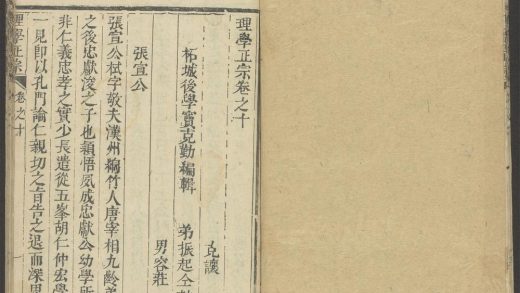 理學正宗卷之十
克讓
柘城後學竇克勤編輯 弟振起仝
男容莊
張宣公
張宣公栻字敬夫漢州綿竹人唐宰相九齡弟
之後忠獻浚之子也穎悟夙成忠獻公幼學所
非仁義忠孝之實少長遣從五峯胡仁仲宏學
一見即以孔門論仁親切之旨告之退而深思
理學正宗 卷之十